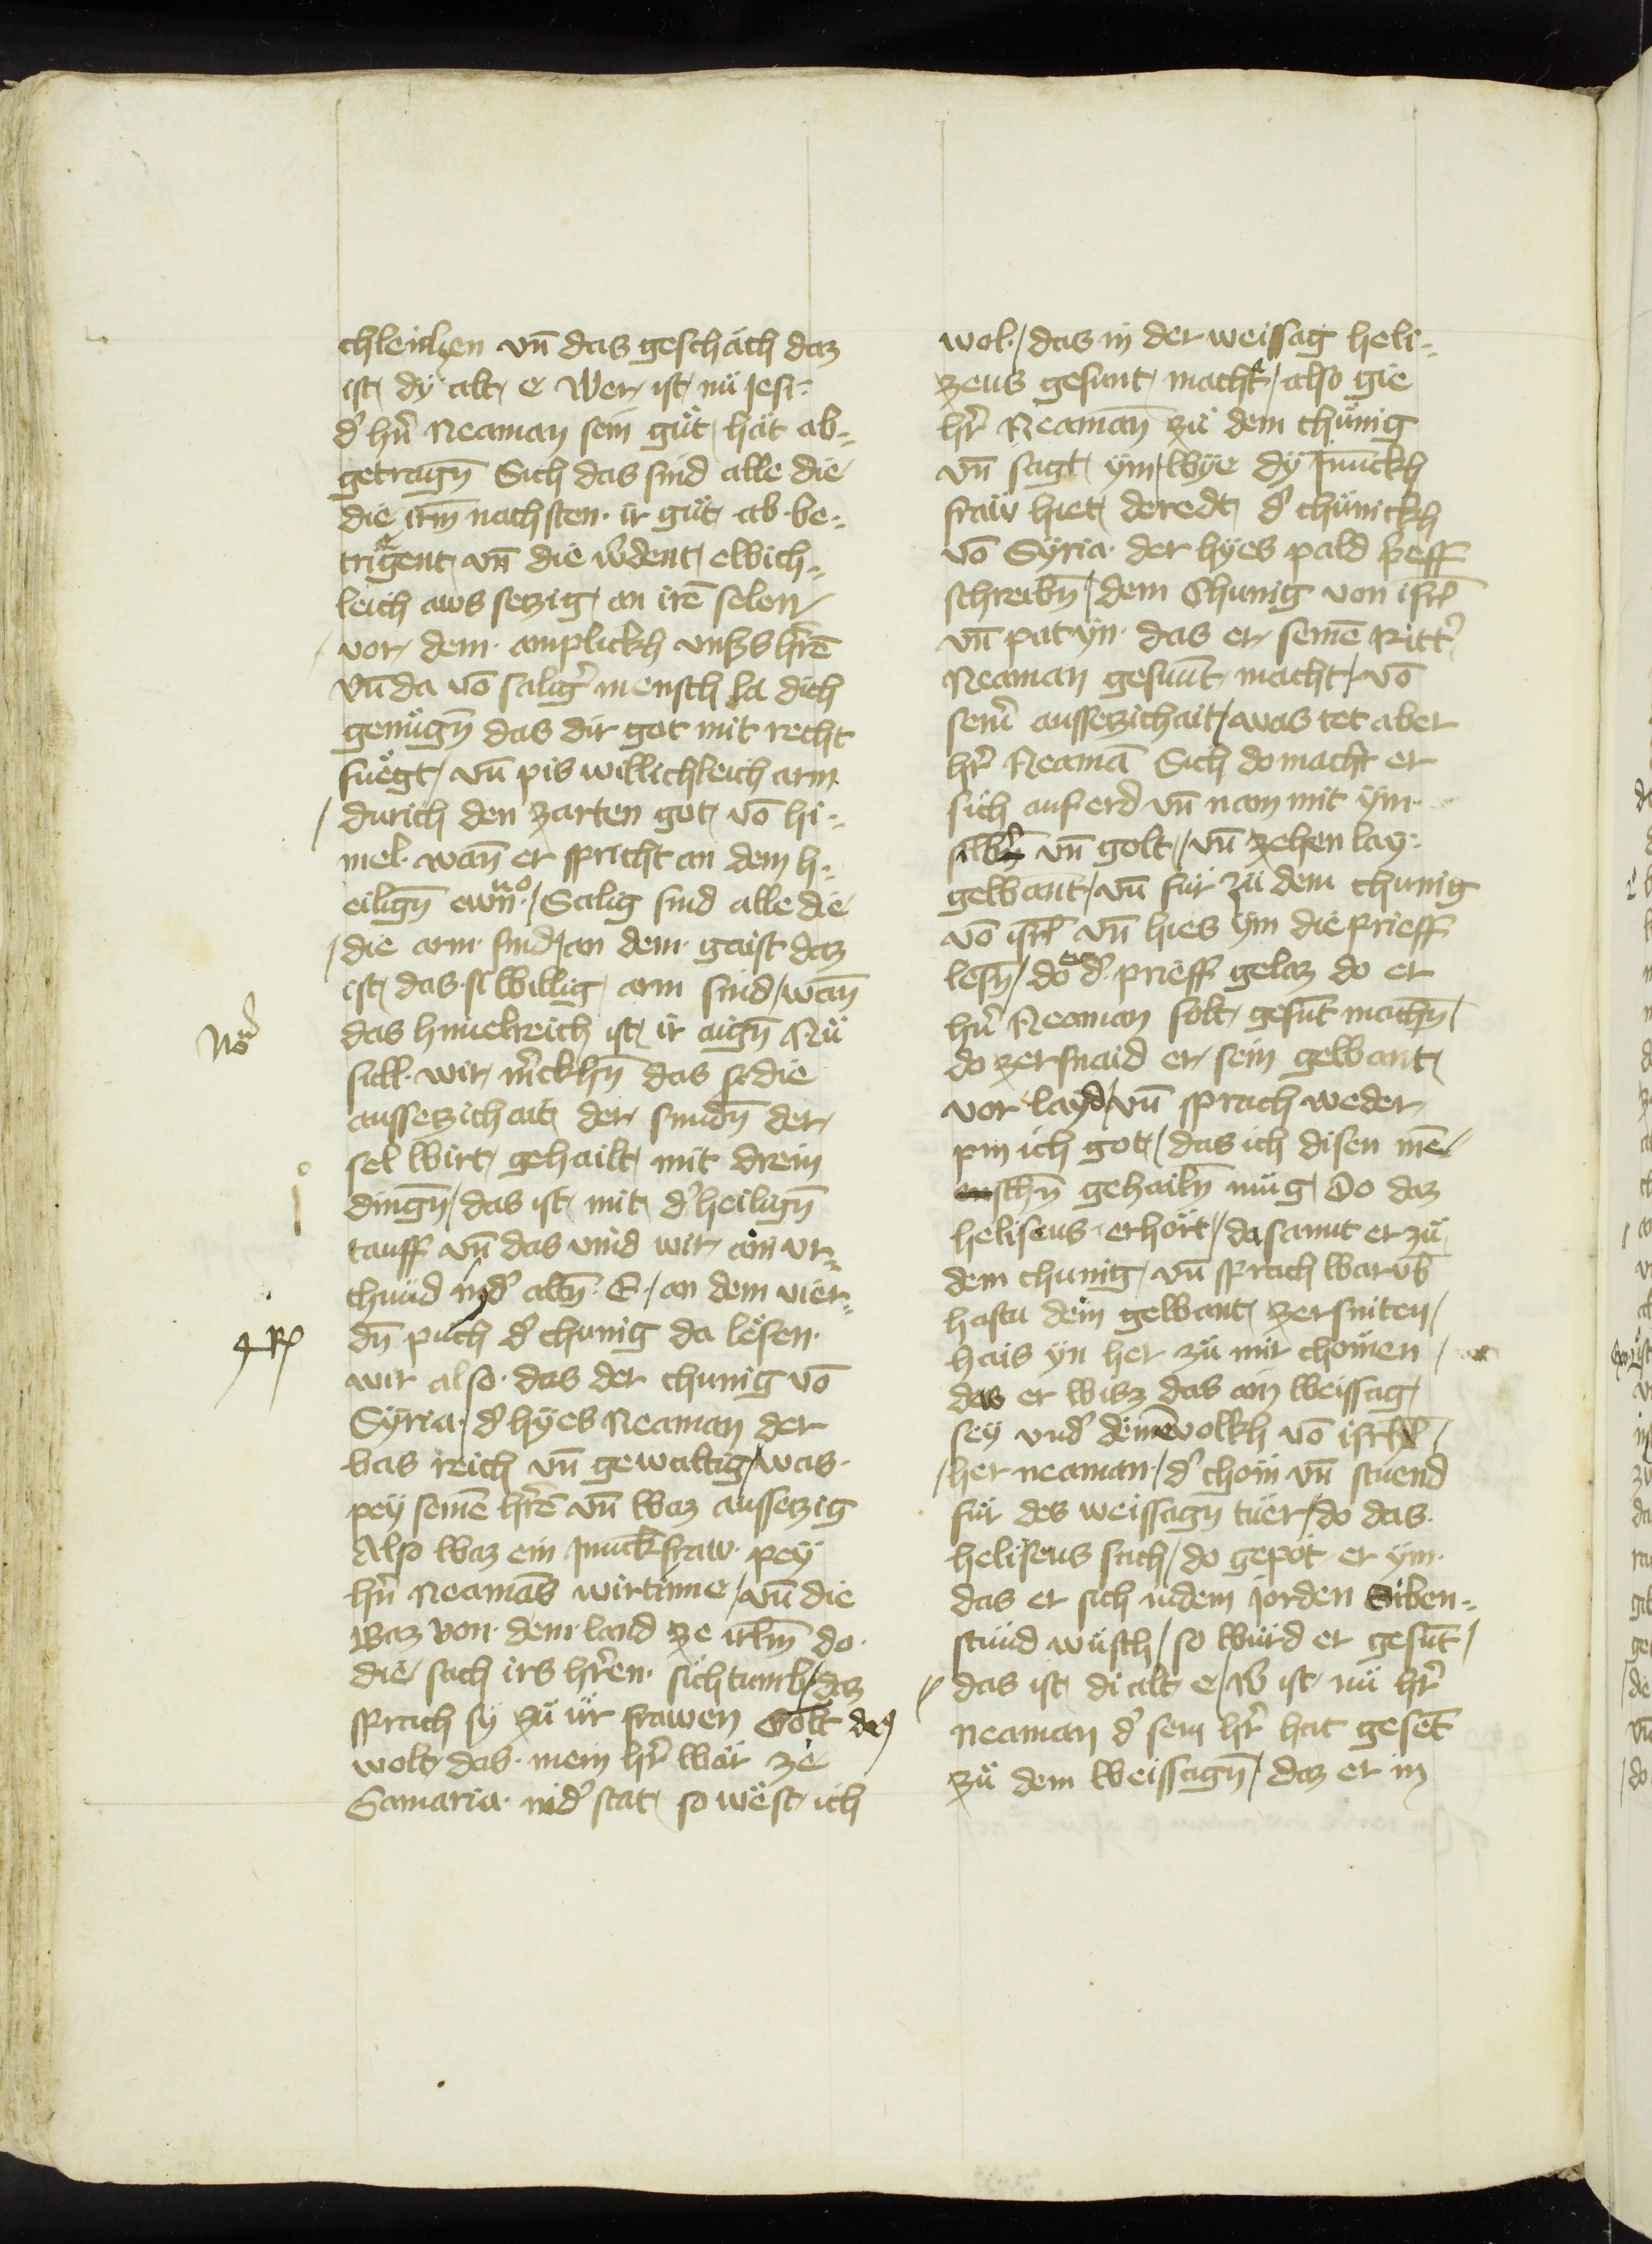 chleichen vn̄ das geschäch daz
ist dÿ alt e Wer ist nü Jesi
d' hr̄n Neaman sein guͤt hät ab¬
getragn̄ Sich das sind alle die
die irm̄ nachsten ir guͤt ab be¬
trigent vn̄ die w'dent ewich¬
leich aws setzig an irē selen
vor dem amplickh vnss hr̄rē
vn̄ da vō salig' mensch la dich
genuͤgn̄ das dir got mit recht
fuͤegt / vn̄ pis willichleich arm
/ durich den zarten got vō hi¬
mel wan̄ er spricht an dem h¬
eilign̄ ewn̄o / Salig sind alle die
/ die arm sind / an dem gaist daz
ist das si willig arm sind / wan̄
das himelreich ist ir aign̄ Nuͤ
No
süll wir m'ckhn̄ das sedie
aussetzichait der sundn̄ der
sel wirt gehailt mit drein
dingn̄ / das ist mit d' heilign̄
tauff vn̄ das vind wir ain vr¬
chund in d' altn̄ E / an dem vier¬
dn̄ puch d' chunig da lesen
4 R
wir also das der chunig vō
Sÿria d' hÿes Neaman der
bas reich vn̄ gewaltig / was
peÿ seinē hr̄rē vn̄ waz aussetzig
Also waz ein Junckfraw peÿ
hr̄n Neamās wirtinne / vn̄ die
waz von dem land ze irlm̄ do
die sach irs hr̄ren sichtumb / daz
sprach sÿ zuͤ ür frawen Golt daz
wolt das mein hr̄ wär ze
Samaria in d' stat so west ich
wol / das in der weissag heli¬
zeus gesunt macht / also gie
hr̄ Neaman̄ zuͤ dem chuͤnig
vn̄ sagt ÿm / wÿe dÿ Junckh
fraw hiet deredt d' chuͤnickh
vō Sÿria der hÿes pald p'eff
schreibn̄ / dem Chunig von isrl̄
vn̄ pat ÿn das er seinē Ritt'
Neaman gesunt macht / vō
sein' aussetzichait / was tet aber
hr̄ Neamā Sich do macht er
sich auf erd vn̄ nam mit ÿm
silb' vn̄ golt / vn̄ zehen lay
gewant / vn̄ fuͤr zuͤ dem chunig
vō isrl̄ vn̄ hies ÿm die prieff
lesn̄ / do er d' prieff gelaz do er
hr̄n Neaman solt gesūt machn̄
do zersnaid er sein gewant
vor laÿd / vn̄ sprach weder
pin ich got / das ich disen mē
schn̄ gehailn̄ müg / Do daz
heliseus erhört / da sannt er zuͤ
dem chunig vn̄ sprach warūb
hastu dein gewant zersniten /
hais ÿn her zuͤ mir chomen /
das er wisz das ain weissag
seÿ vnd' deinē volkh vō isrl̄ /
/ her neaman / d' chom vn̄ stuend
für des weissagn̄ tuer / do das
heliseus sach / do gepot er ÿm
das er sich in dem Jorden Siben¬
stund wuͤsch / so wurd er gesūt /
das ist di alt e / W' ist nuͤ hr̄
neaman d' sein hr̄ hat gesēt
zuͤ dem weissagn̄ / daz er in